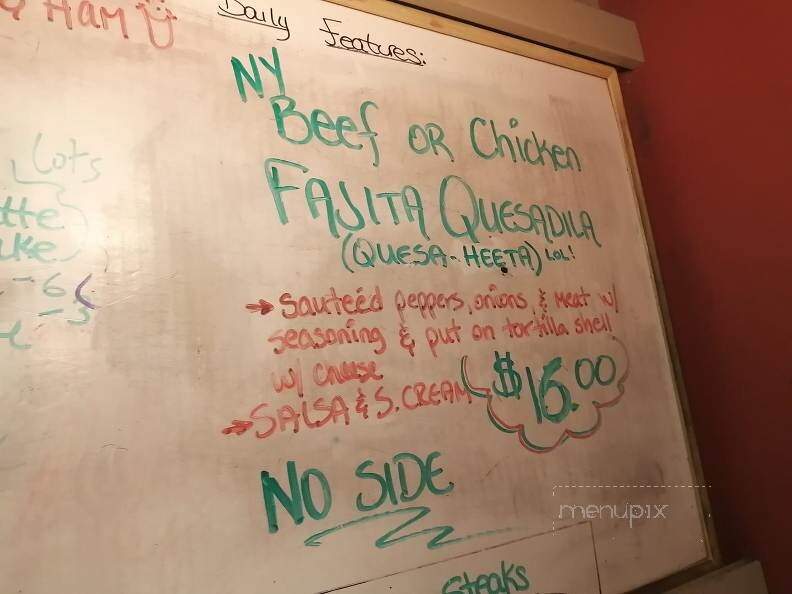 & HAM
Daily Features:
NY
Beef OR Chicken
FAJITA QUESADILA
(QUESA-HEETA) LOL!
→ Sauteéd peppers, onions, & Meat w/
seasoning & put on tortilla shell
w/ cheese
→ SALSA & S. CREAM
$16.00
NO SIDE
Steaks
Lots
- 6
- 5
menupix